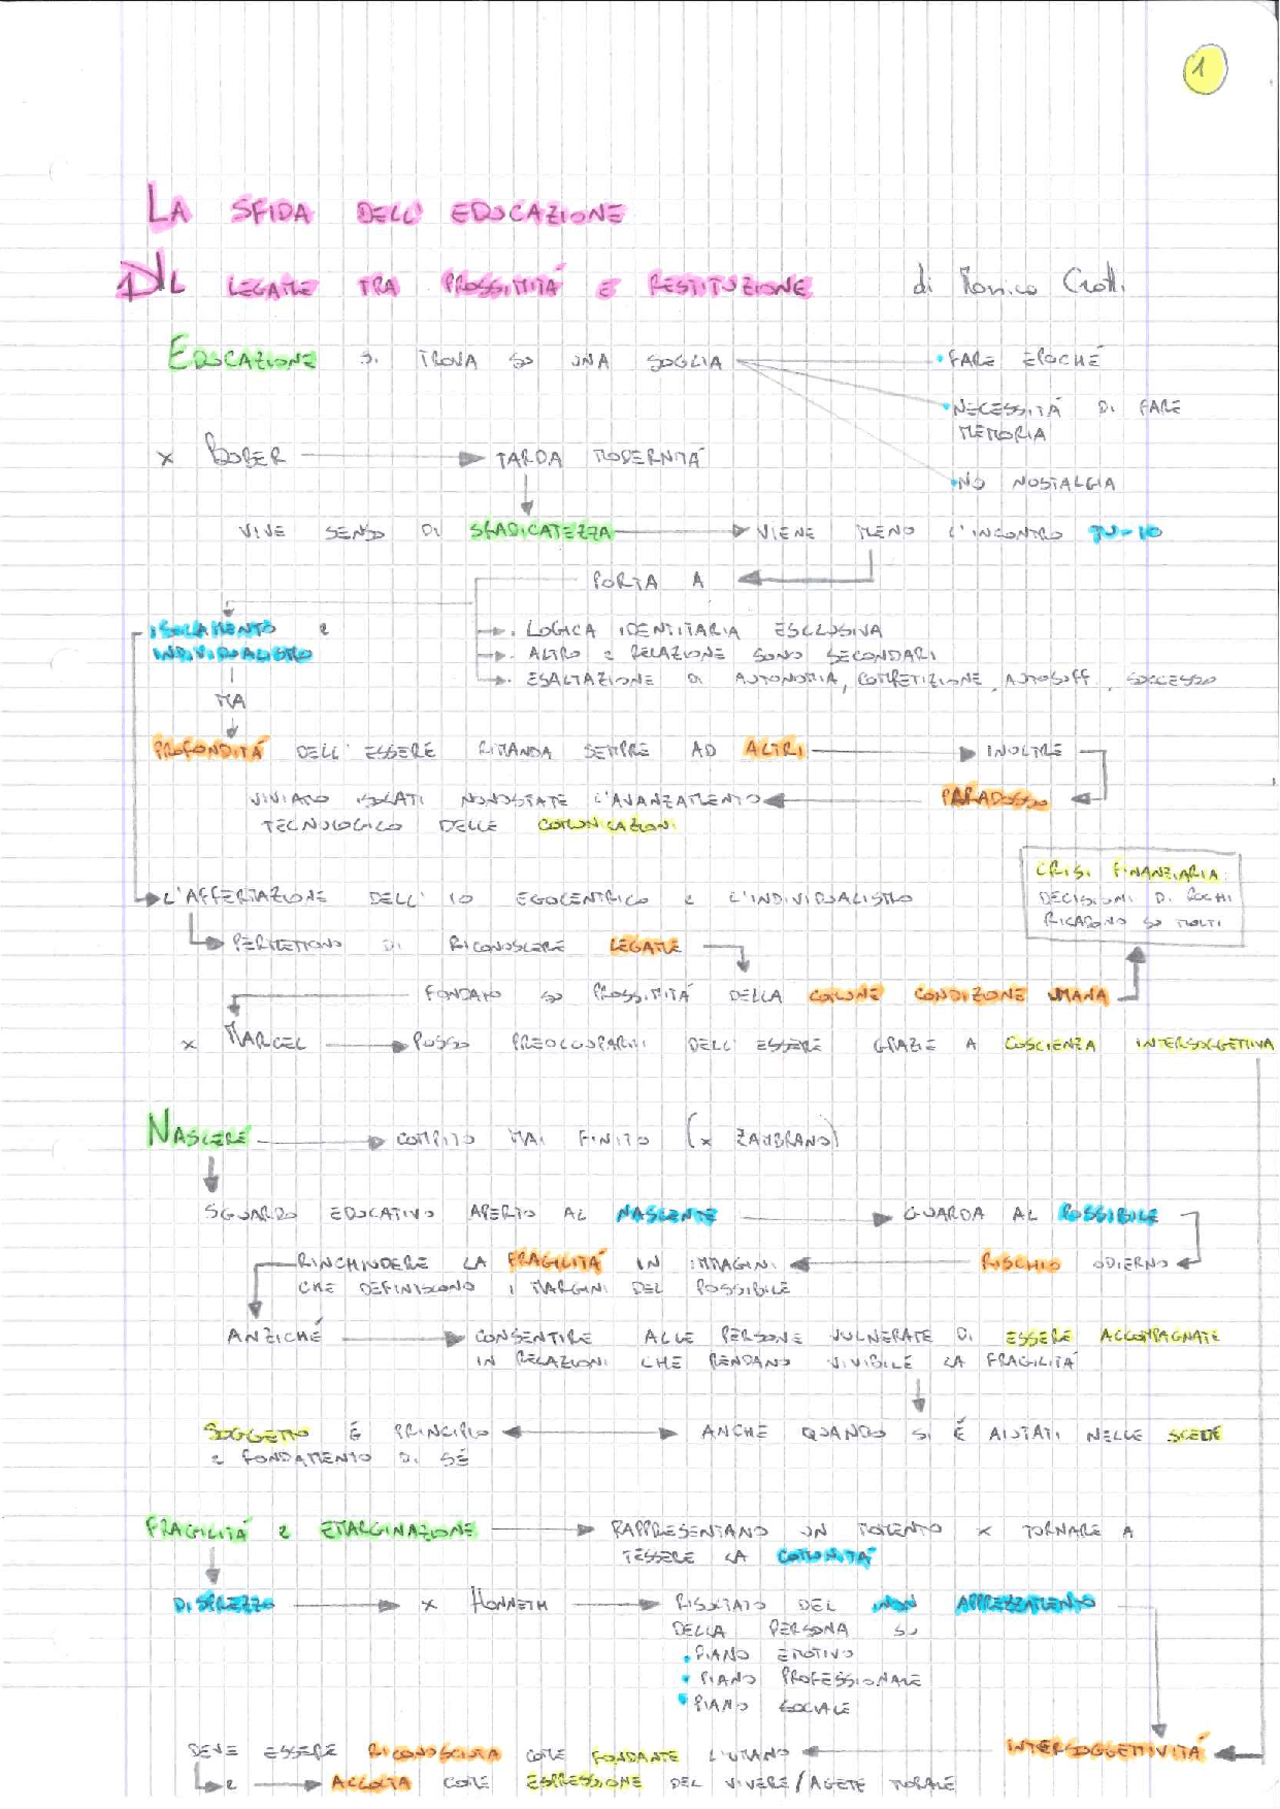 1
LA SFIDA DELL'EDUCAZIONE
1) IL LEGAME TRA PROSSIMITÁ E RESTITUZIONE di Monica Crotti
EDUCAZIONE SI TROVA SU UNA SOGLIA • FARE EPOCHÉ
• NECESSITÁ DI FARE
MEMORIA
× BUBER → TARDA MODERNITÁ
• NO NOSTALGIA
VIVE SENSO DI SRADICATEZZA → VIENE MENO L'INCONTRO TU-IO
PORTA A
ISOLAMENTO E
INDIVIDUALISMO
→ • LOGICA IDENTITARIA ESCLUSIVA
→ • ALTRO E RELAZIONE SONO SECONDARI
→ • ESALTAZIONE DI AUTONOMIA, COMPETIZIONE, AUTOSUFF, SUCCESSO
MA
PROFONDITÁ DELL'ESSERE RIMANDA SEMPRE AD ALTRI → INOLTRE
VIVIAMO ISOLATI NONOSTATE L'AVANZAMENTO ← PARADOSSO
TECNOLOGICO DELLE COMUNICAZIONI
CRISI FINANZIARIA:
DECISIONI DI POCHI
RICADONO SU MOLTI
→ L'AFFERMAZIONE DELL'IO EGOCENTRICO E L'INDIVIDUALISMO
→ PERMETTONO DI RICONOSCERE LEGAME
FONDATO SU PROSSIMITÁ DELLA COMUNE CONDIZIONE UMANA
× MARCEL → POSSO PREOCCUPARMI DELL'ESSERE GRAZIE A COSCIENZA INTERSOGGETTIVA
NASCERE → COMPITO MAI FINITO (× ZAMBRANO)
SGUARDO EDUCATIVO APERTO AL NASCENTE → GUARDA AL POSSIBILE
RINCHIUDERE LA FRAGILITÁ IN IMMAGINI ← RISCHIO ODIERNO
CHE DEFINISCONO I MARGINI DEL POSSIBILE
ANZICHÉ → CONSENTIRE ALLE PERSONE VULNERATE DI ESSERE ACCOMPAGNATE
IN RELAZIONI CHE RENDANO VIVIBILE LA FRAGILITÁ
SOGGETTO É PRINCIPIO ↔ ANCHE QUANDO SI É AIUTATI NELLE SCELTE
E FONDAMENTO DI SÉ
FRAGILITÁ E EMARGINAZIONE → RAPPRESENTANO UN MOMENTO × TORNARE A
TESSERE LA COMUNITÁ
DISPREZZO → × HONNETH → RISULTATO DEL NON APPREZZAMENTO
DELLA PERSONA SU
• PIANO EMOTIVO
• PIANO PROFESSIONALE
• PIANO SOCIALE
DEVE ESSERE RICONOSCIUTA COME FONDANTE L'UMANO ← INTERSOGGETTIVITÁ
E → ACCOLTA COME ESPRESSIONE DEL VIVERE/AGETE MORALE